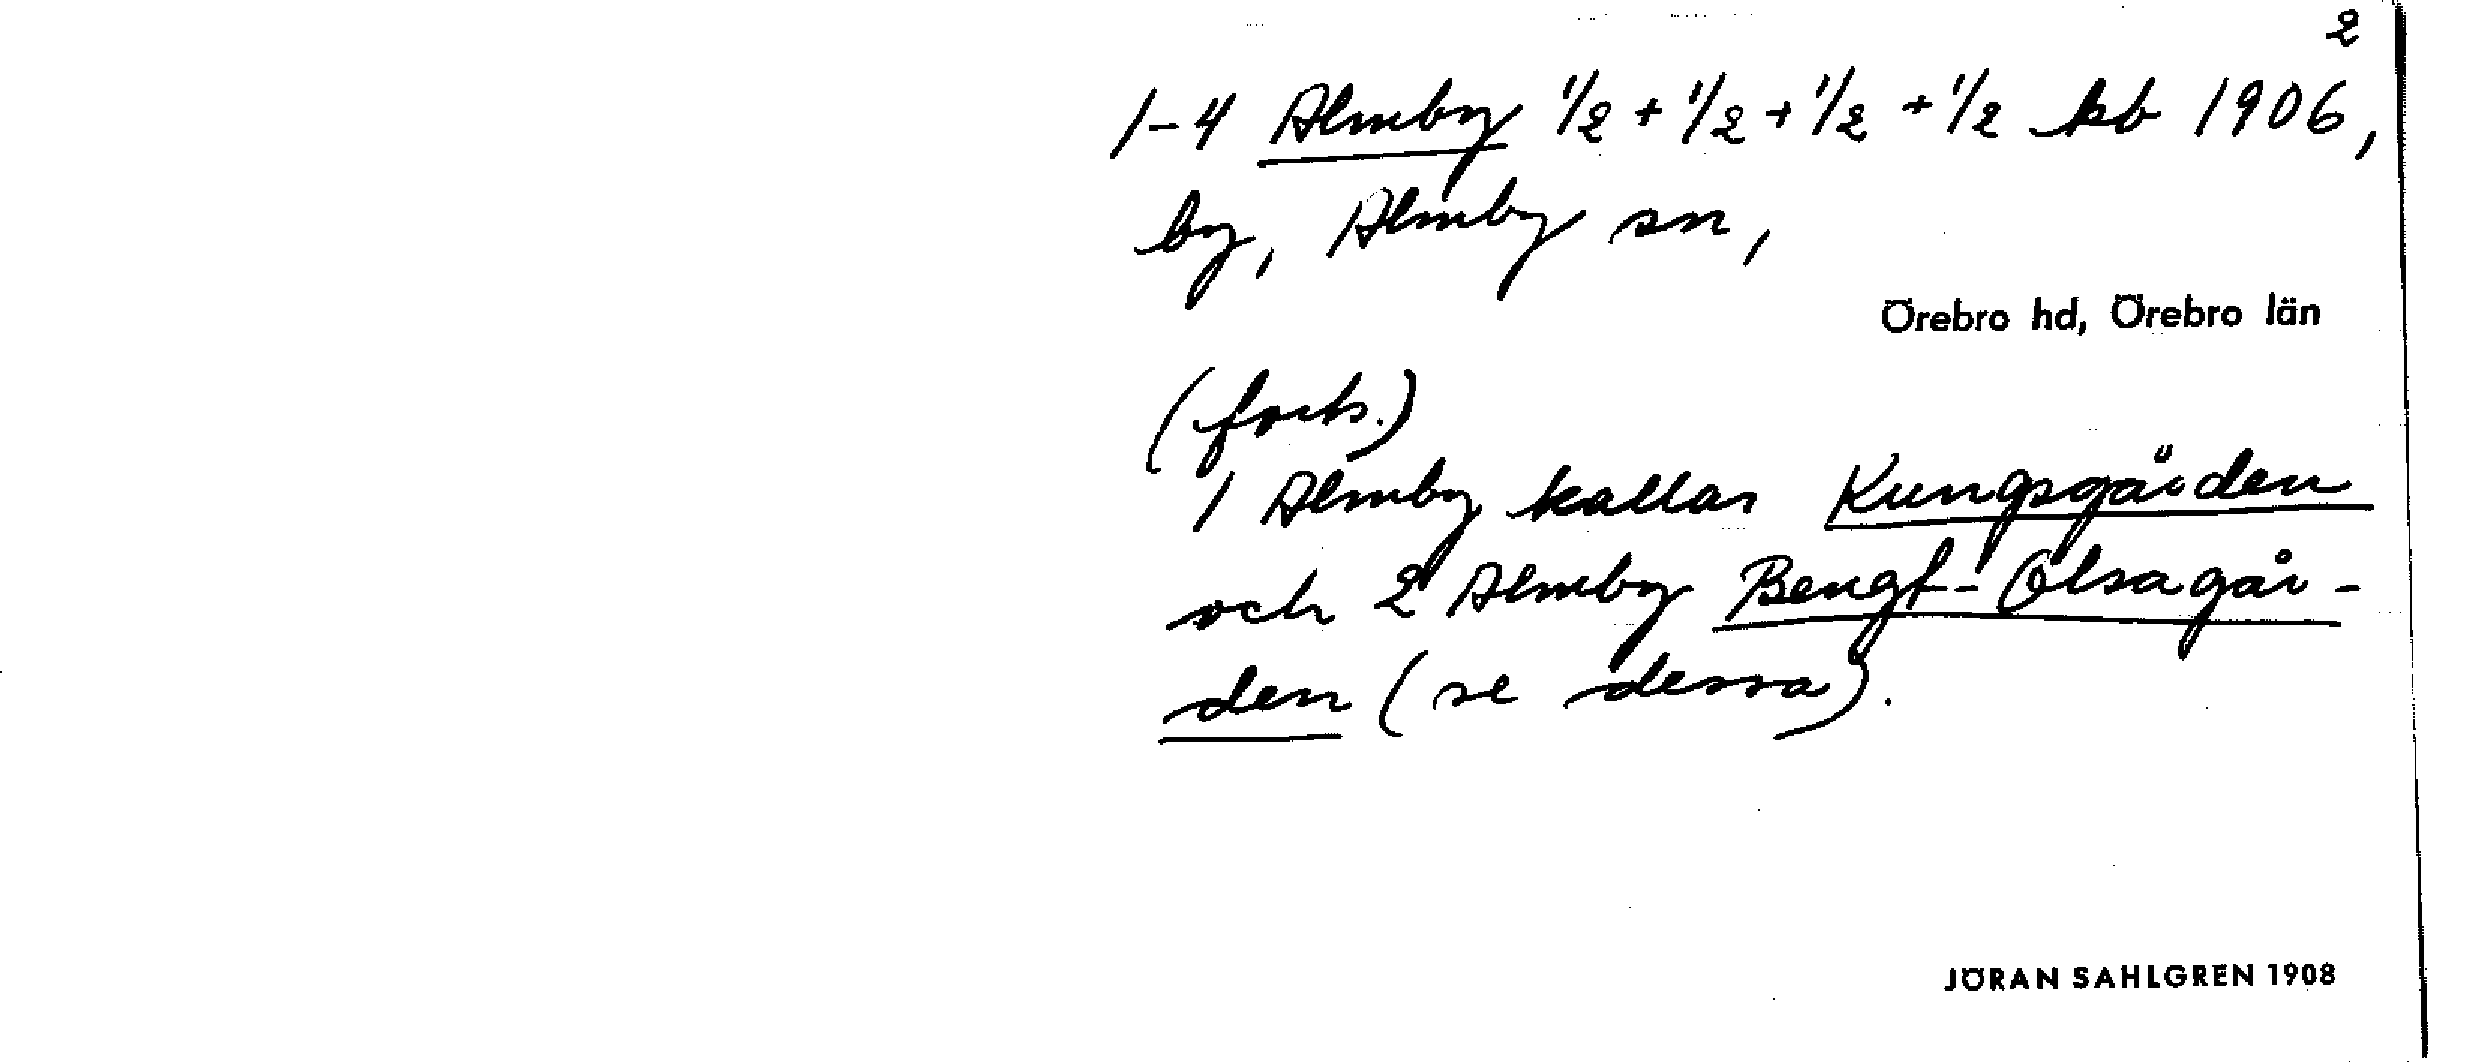 2
1-4 Almby 1/2 + 1/2 + 1/2 + 1/2 kb 1906,
by, Almby sn,
Örebro hd, Örebro län
(forts.)
1 Almby kallas Kungsgården
och 2 Almby Bengt-Olsagår-
den (se dessa).
JÖRAN SAHLGREN 1908